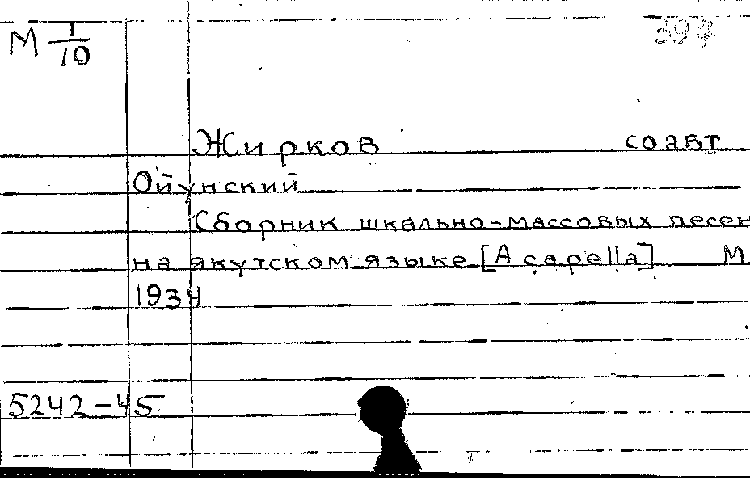 М 1/10
Жирков соавт
Ойунский
Сборник шкально-массовых песен
на якутском языке [A capella] М
1934
5242-45